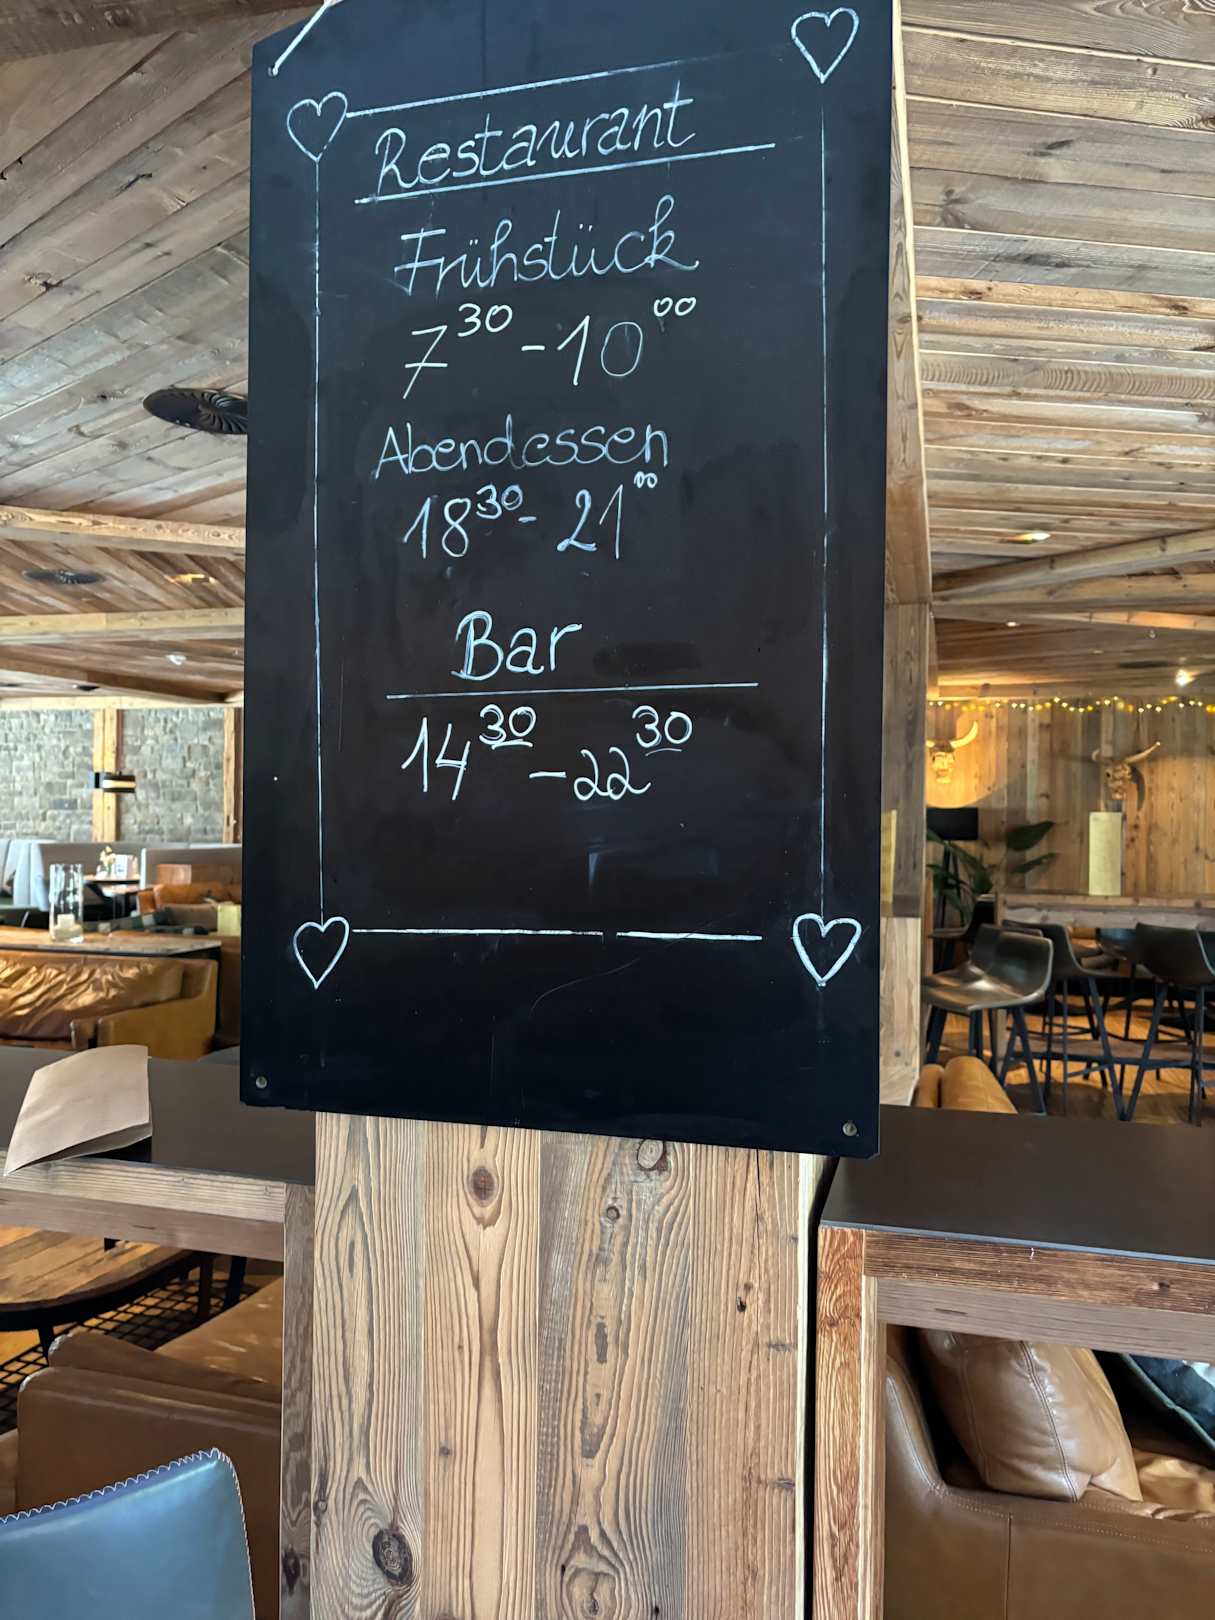 Restaurant
Frühstück
7³⁰ - 10⁰⁰
Abendessen
18³⁰ - 21⁰⁰
Bar
14³⁰ - 22³⁰